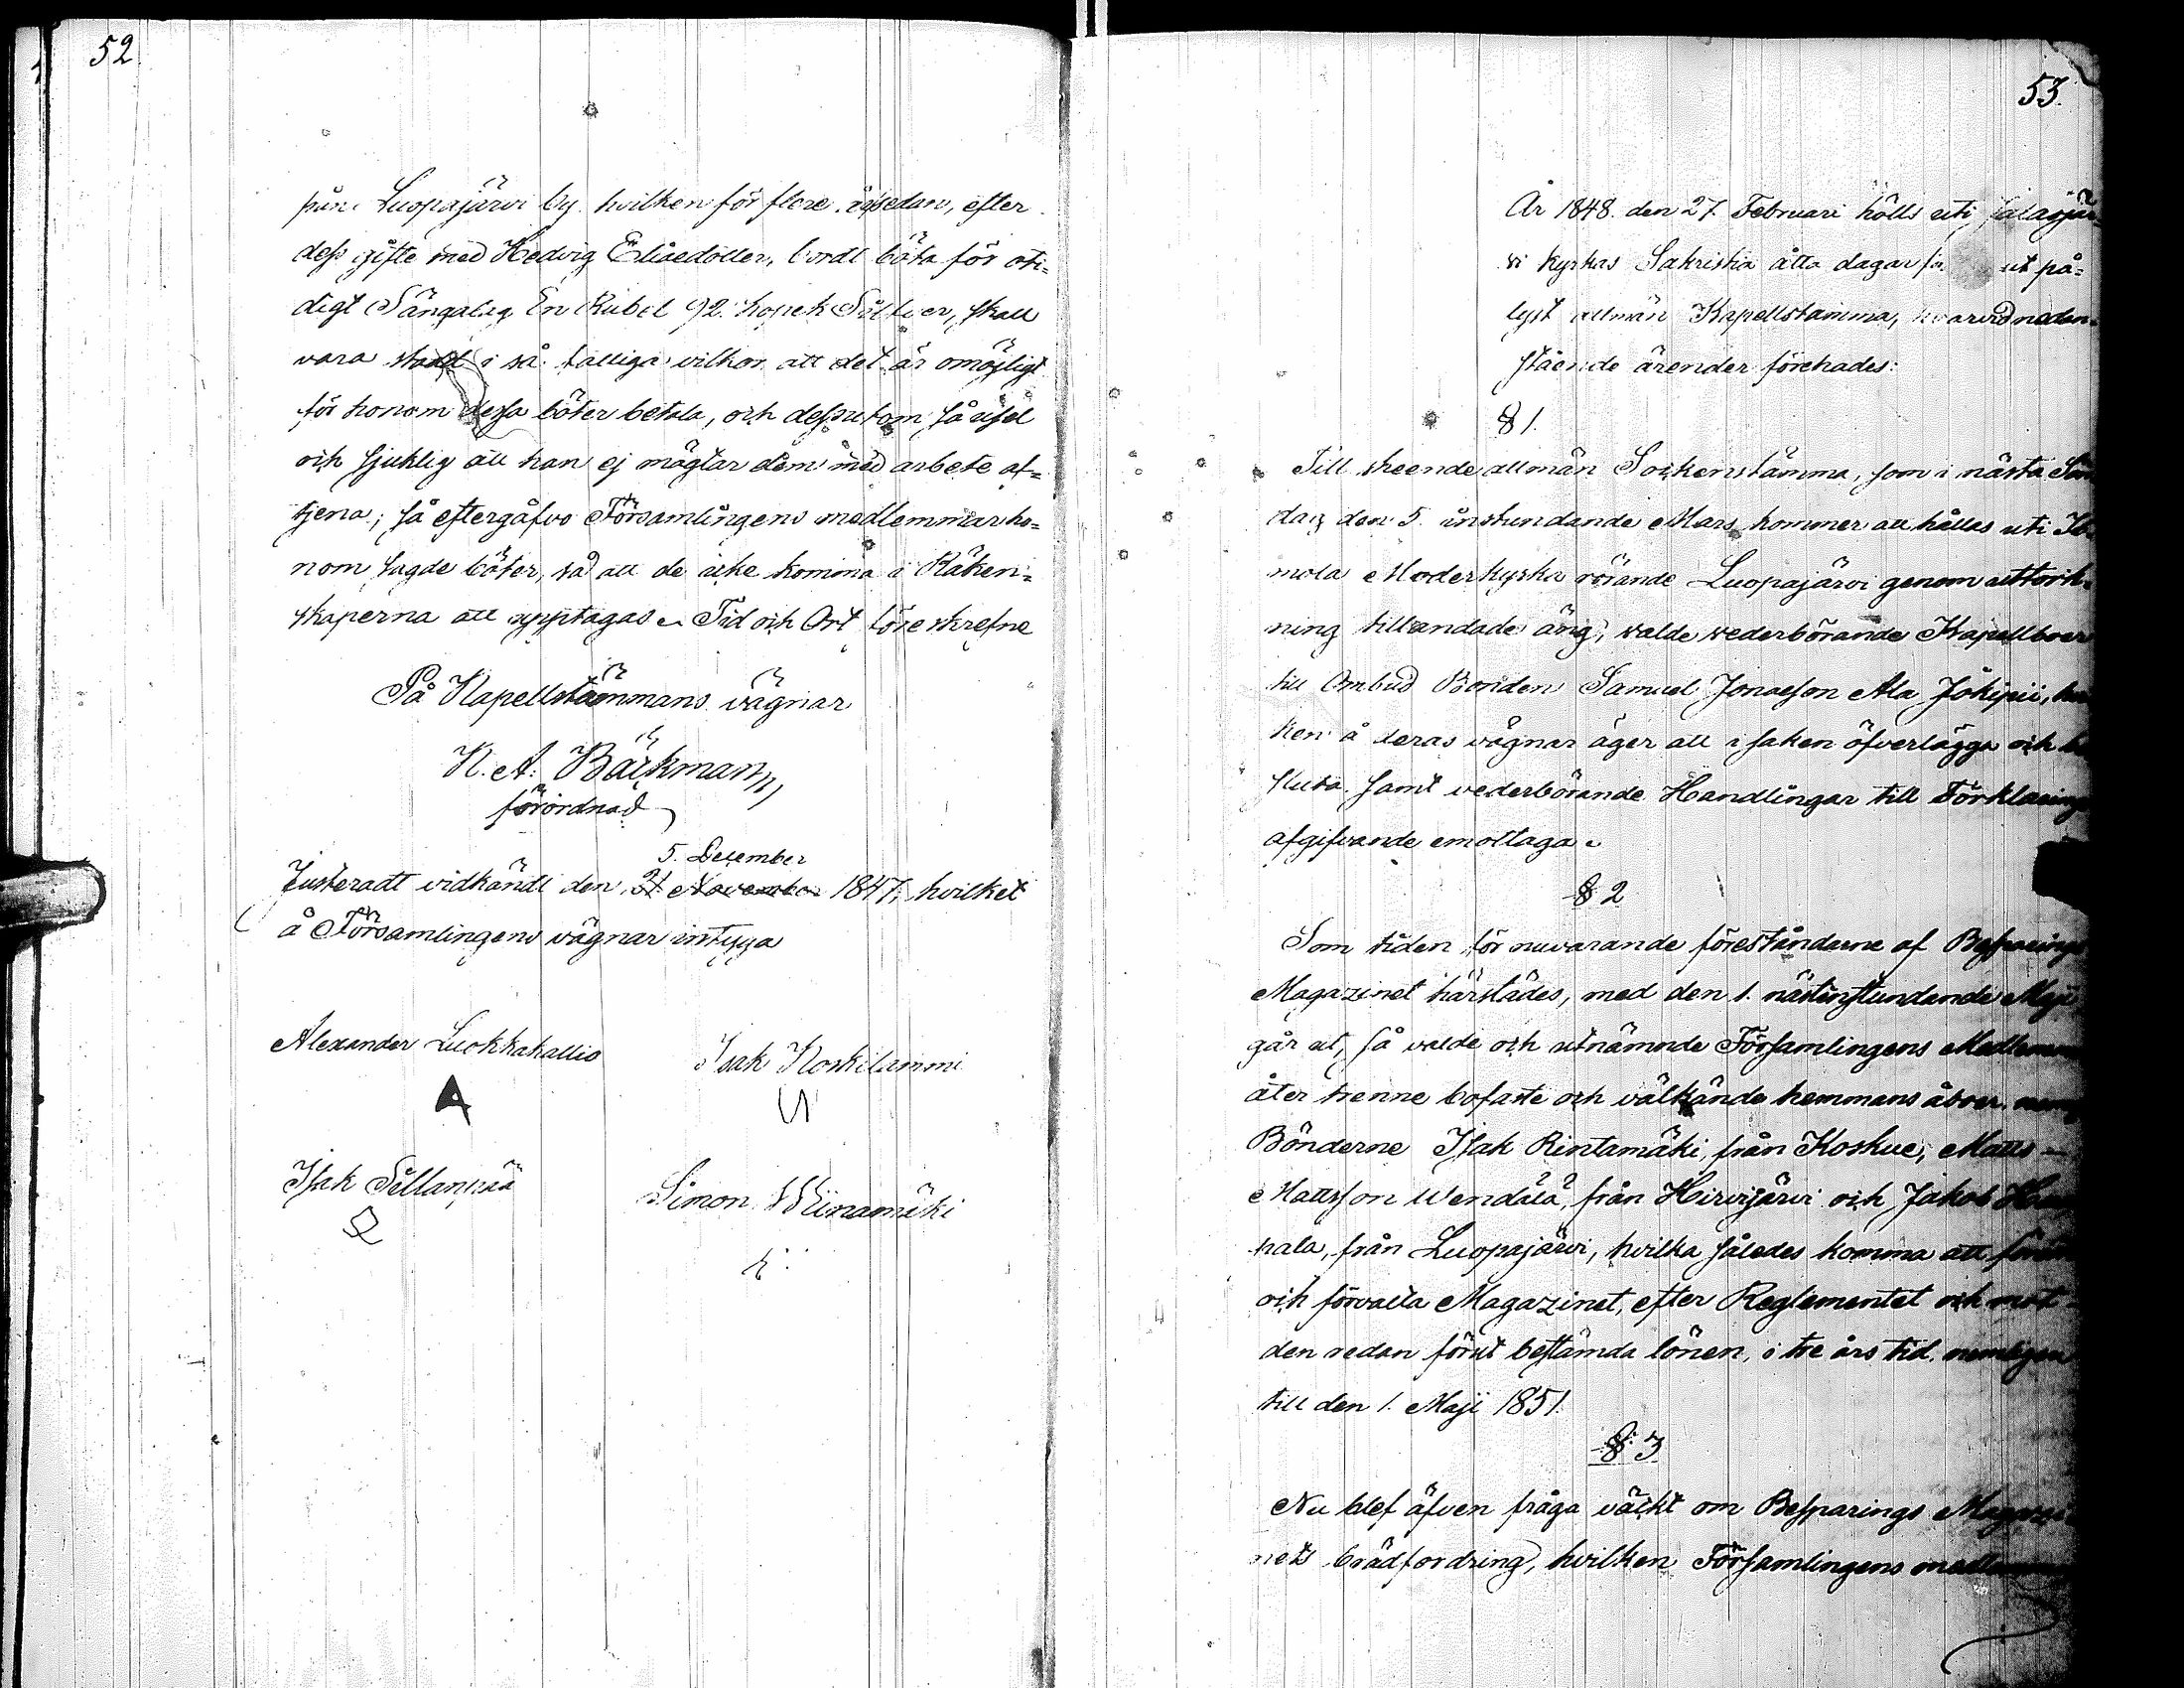 52
från Luopajärvi by. hvilken för flere år sedan, efter
dess gifte med Hedvig Eliædotter, bordt böta för oti-
digt Sängalag En Rubel 92. kopek Silfver, skall
vara stadd i så talliga vilkor att det är omöjligt
för honom dessa böter betala, och dessutom så usel
och sjuklig att han ej mägtar dem med arbete af-
tjena; så eftergåfvo Församlingens medlemmar ho-
nom sagde böter, så att de icke komma i Räken-
skaperna att upptagas. Tid och Ort föreskrefne
På Kapellstämmans vägnar
K. A. Bäckman
förordnad
5. December
Justeradt vidkändt den 21 November 1847, hvilket
å Församlingens vägnar intyga
Alexander Luokkakallio
Isak Koskilammi
A
Isak Sillanpää
Simon Wiinamäki
53.
År 1848. den 27. Februari hölls uti Jalasjär-
vi kyrkas Sakristia åtta dagar förut på-
lyst allmän Kapellstämma, hvarvid nedan-
stående ärender förehades:
§ 1.
Till skeende allmän Sockenstämma, som i nästa Sön
dag den 5. instundande Mars kommer att hållas uti Il-
mola Moderkyrka rörande Luopajärvi genom uttork-
ning tillandade äng, valde vederbörande Kapellboer
till Ombud Bonden Samuel Jonaesson Ala Jokipii, hvil
ken å deras vägnar äger att i saken öfverlägga och be
sluta samt vederbörande Handlingar till Förklarings
afgifvande emottaga.
§ 2
Som tiden för nuvarande föreståndarne af Besparings
Magazinet härstädes, med den 1. nästinstundande Maji
går ut, så valde och utnämnde Församlingens Medlemmar
åter trenne bofaste och välkände hemmans åboer
Bönderne Isak Rintamäki, från Koskue, Matts
Mattsson Wendälä, från Hirvijärvi och Jakob
kala, från Luopajärvi, hvilka således komma att
och förvalta Magazinet, efter Reglementet och mot
den redan förut bestämda lönen, i tre års tid. nemligen
till den 1. Maji 1851.
§. 3
Nu blef äfven fråga väckt om Besparings Magazi
nets brådfordring, hvilken Församlingens medlemmar